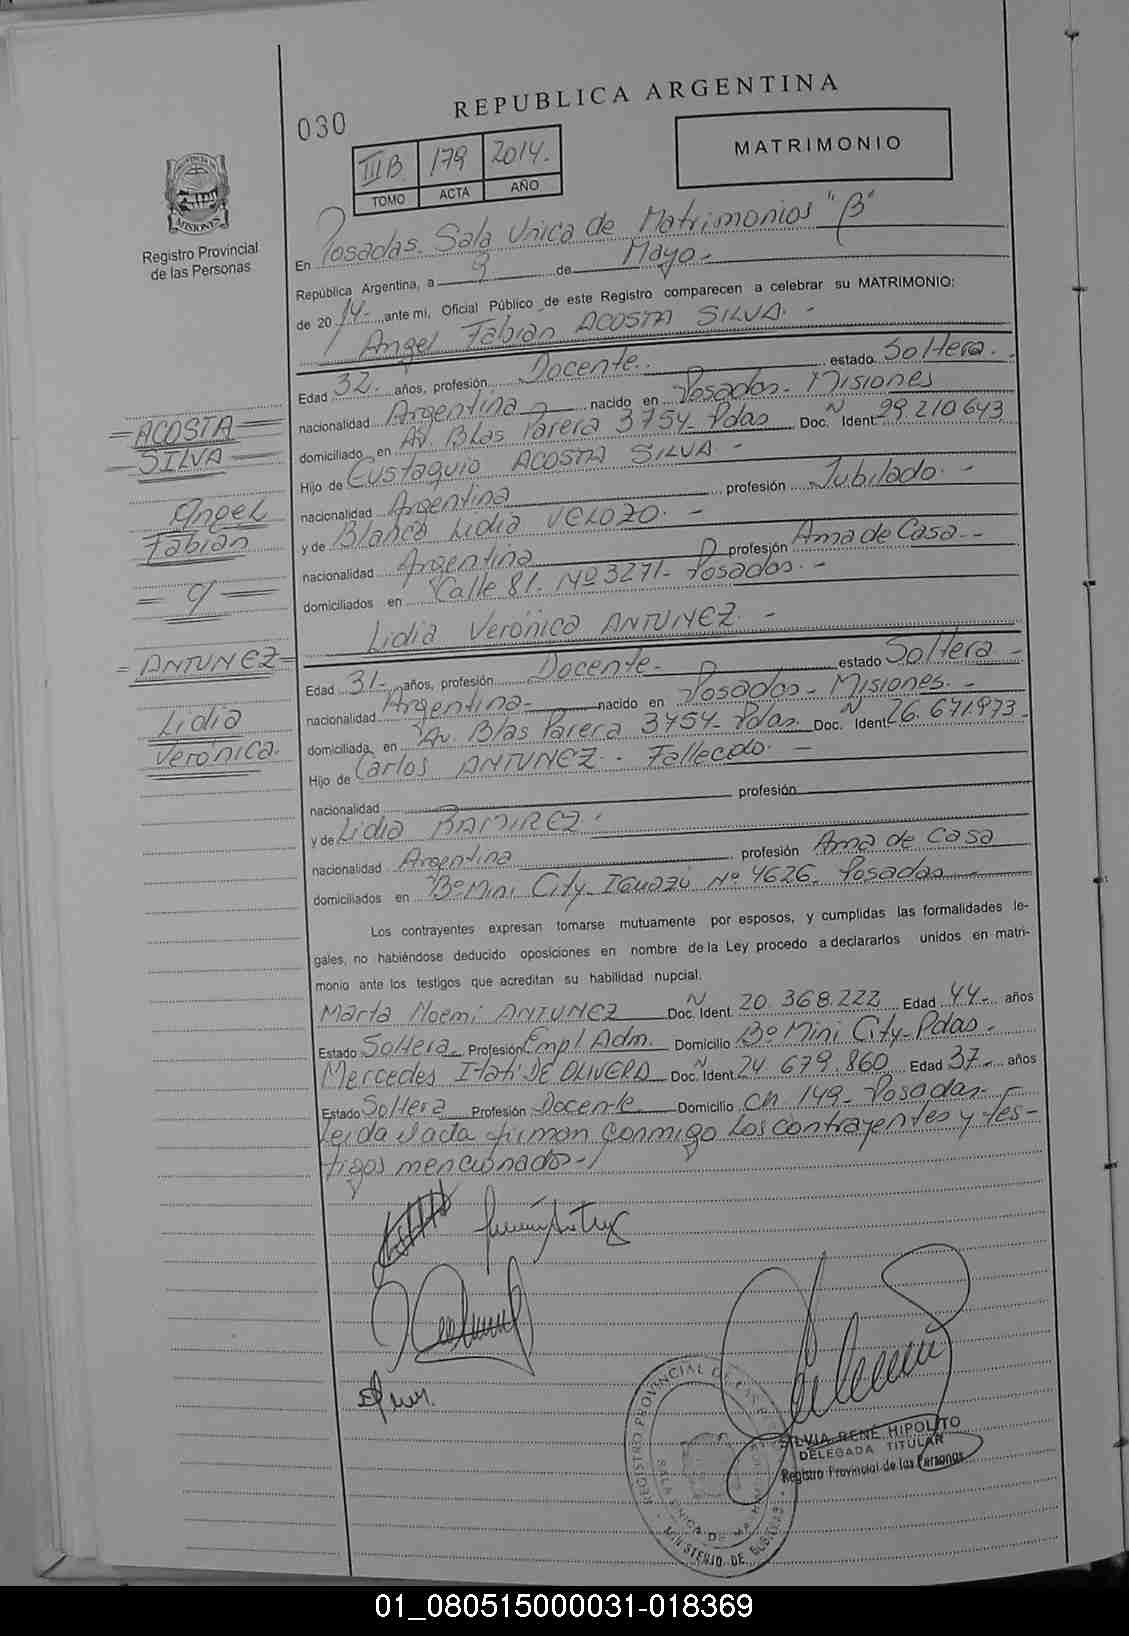 REPUBLICA ARGENTINA
030
III B. 179 2014.
TOMO ACTA AÑO
MATRIMONIO
PROVINCIA DE
MISIONES
Registro Provincial
de las Personas
En Posadas. Sala Unica de Matrimonios "B"
República Argentina, a 9 de Mayo.
de 20 14 ante mi, Oficial Público de este Registro comparecen a celebrar su MATRIMONIO:
Angel Fabian ACOSTA SILVA. -
Edad 32. años, profesión Docente. estado Soltera. -
nacionalidad Argentina nacido en Posadas - Misiones
domiciliado en Av. Blas Parera 3754 - Pdas Doc. Ident. Nº 29.210.643
Hijo de Eustaquio ACOSTA SILVA. -
nacionalidad Argentina profesión Jubilado. -
y de Blanca Lidia VELOZO. -
nacionalidad Argentina profesión Ama de Casa. -
domiciliados en Calle 81. Nº 3271 - Posadas. -
Lidia Verónica ANTUNEZ. -
Edad 31 - años, profesión Docente - estado Soltera -
nacionalidad Argentina - nacido en Posadas - Misiones. -
domiciliada en Av. Blas Parera 3754 - Pdas. Doc. Ident. Nº 26.671.973 -
Hijo de Carlos ANTUNEZ - Fallecido. -
nacionalidad profesión
y de Lidia RAMIREZ.
nacionalidad Argentina profesión Ama de Casa
domiciliados en Bº Mini City - Iguazú Nº 4626 - Posadas -
ACOSTA
SILVA
Angel
Fabian
y
ANTUNEZ
Lidia
Verónica.
Los contrayentes expresan tomarse mutuamente por esposos, y cumplidas las formalidades le-
gales, no habiéndose deducido oposiciones en nombre de la Ley procedo a declararlos unidos en matri-
monio ante los testigos que acreditan su habilidad nupcial.
Marta Noemi ANTUNEZ Doc. Ident. Nº 20.368.222 Edad 44 - años
Estado Soltera Profesión Empl. Adm. Domicilio Bº Mini City - Pdas -
Mercedes Itati DE OLIVERA Doc. Ident. Nº 24.679.860 Edad 37 - años
Estado Soltera Profesión Docente Domicilio Ch. 149 - Posadas -
Leida el acta firman conmigo los contrayentes y tes-
tigos mencionados -
REGISTRO PROVINCIAL DE LAS
SALA UNICA DE
MINISTERIO DE GOBIERNO
SILVIA RENÉ HIPOLITO
DELEGADA TITULAR
Registro Provincial de las Personas
01_080515000031-018369